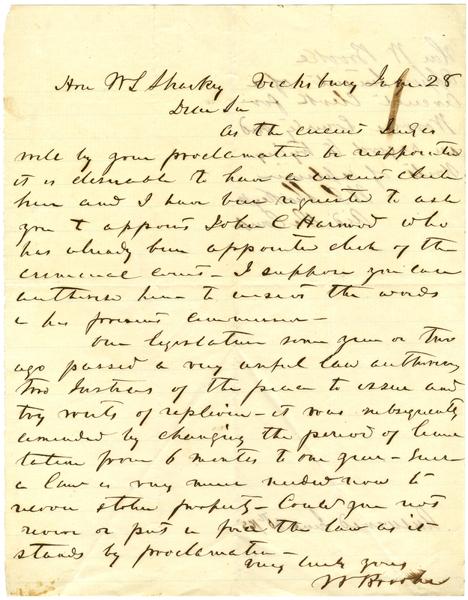 Hon W L Sharkey Vicksburg June 28
Dear Sir
As the circuit Judges
will by your proclamation be reappointed
it is desirable to have a circuit clerk
here and I have been requested to ask
you to appoint John C Harwood who
has already been appointed clerk of the
criminal court - I suppose you can
authorise him to insert the words
in his present commission -
Our legislature some year or two
ago passed a very useful law authorising
two Justices of the peace to issue and
try writs of replevin - it was subsequently
amended by changing the period of limi
tation from 6 months to one year - Such
a law is very much needed now to
recover stolen property - Could you not
revive or put in force the law as it
stands by proclamation -
very truly yours
W Brooke